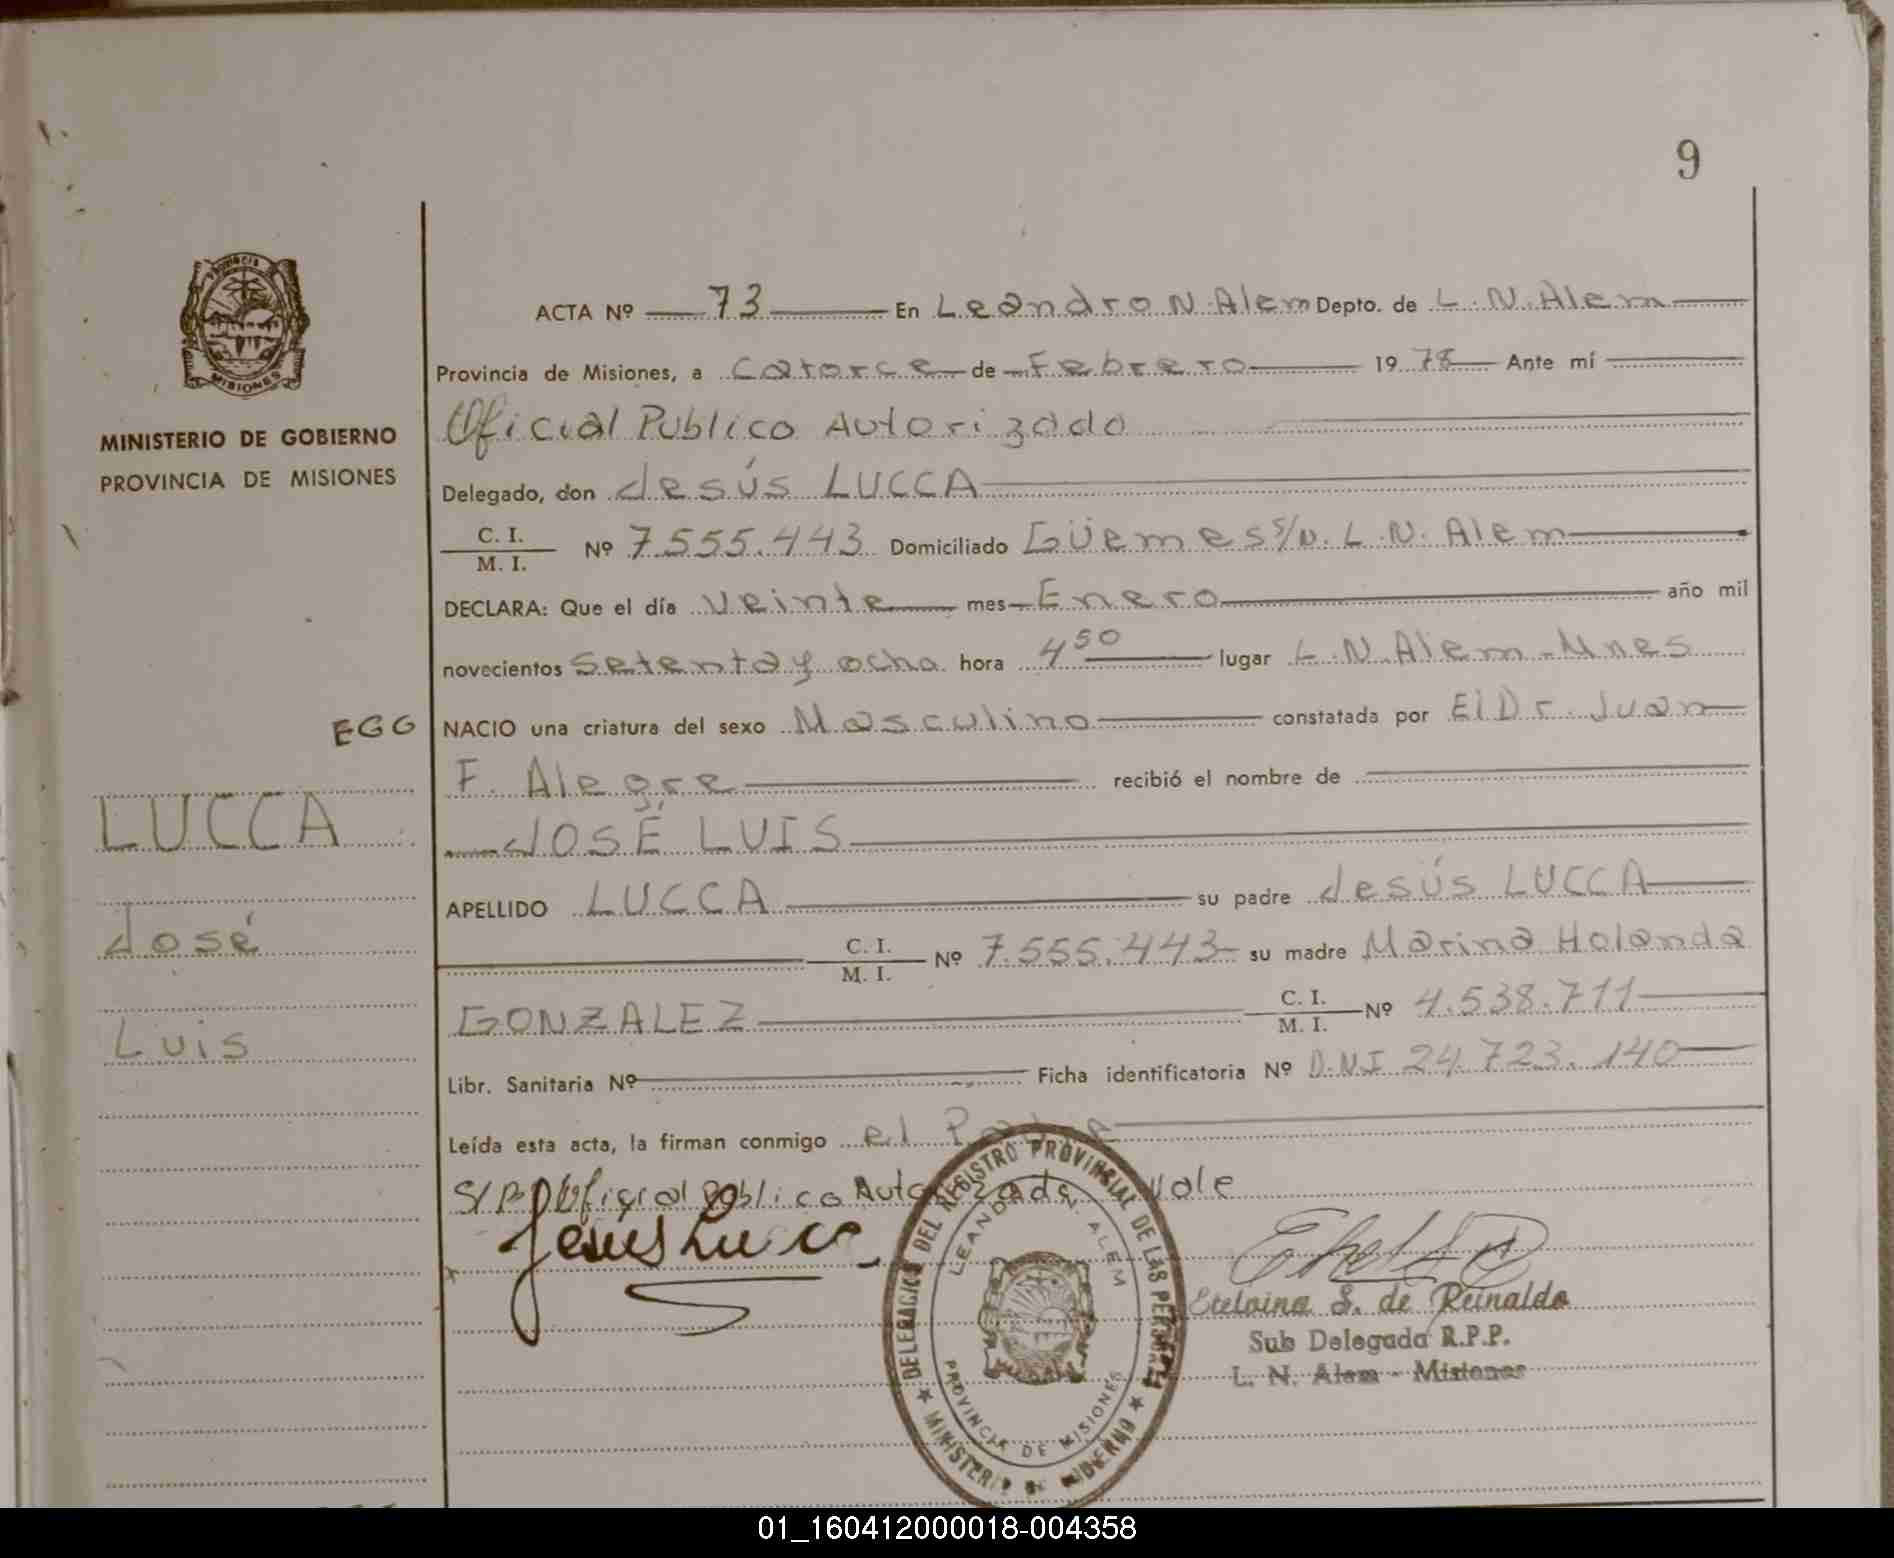 9
PROVINCIA
MISIONES
MINISTERIO DE GOBIERNO
PROVINCIA DE MISIONES
EGG
LUCCA
José
Luis
ACTA Nº 73 En Leandro N. Alem Depto. de L. N. Alem
Provincia de Misiones, a catorce de Febrero 1978 Ante mí
Oficial Publico Autorizado
Delegado, don Jesús LUCCA
C. I.
M. I. Nº 7.555.443 Domiciliado Güemes s/n. L. N. Alem
DECLARA: Que el día veinte mes Enero año mil
novecientos Setenta y ocho hora 4 50 lugar L. N. Alem - Mnes
NACIO una criatura del sexo Masculino constatada por El Dr. Juan
F. Alegre recibió el nombre de
JOSÉ LUIS
APELLIDO LUCCA su padre Jesús LUCCA
C. I.
M. I. Nº 7.555.443 su madre Marina Holanda
GONZALEZ C. I.
M. I. Nº 4.538.711
Libr. Sanitaria Nº Ficha identificatoria Nº D.N.I 24.723.140
Leída esta acta, la firman conmigo el Padre
S/R Oficial Publico Autorizada Vale
Jesus Lucca
DELEGACION DEL REGISTRO PROVINCIAL DE LAS PERSONAS
LEANDRO N. ALEM
PROVINCIA DE MISIONES
★ MINISTERIO DE GOBIERNO ★
Etelvina S. de Reinaldo
Sub Delegada R.P.P.
L. N. Alem - Misiones
01_160412000018-004358